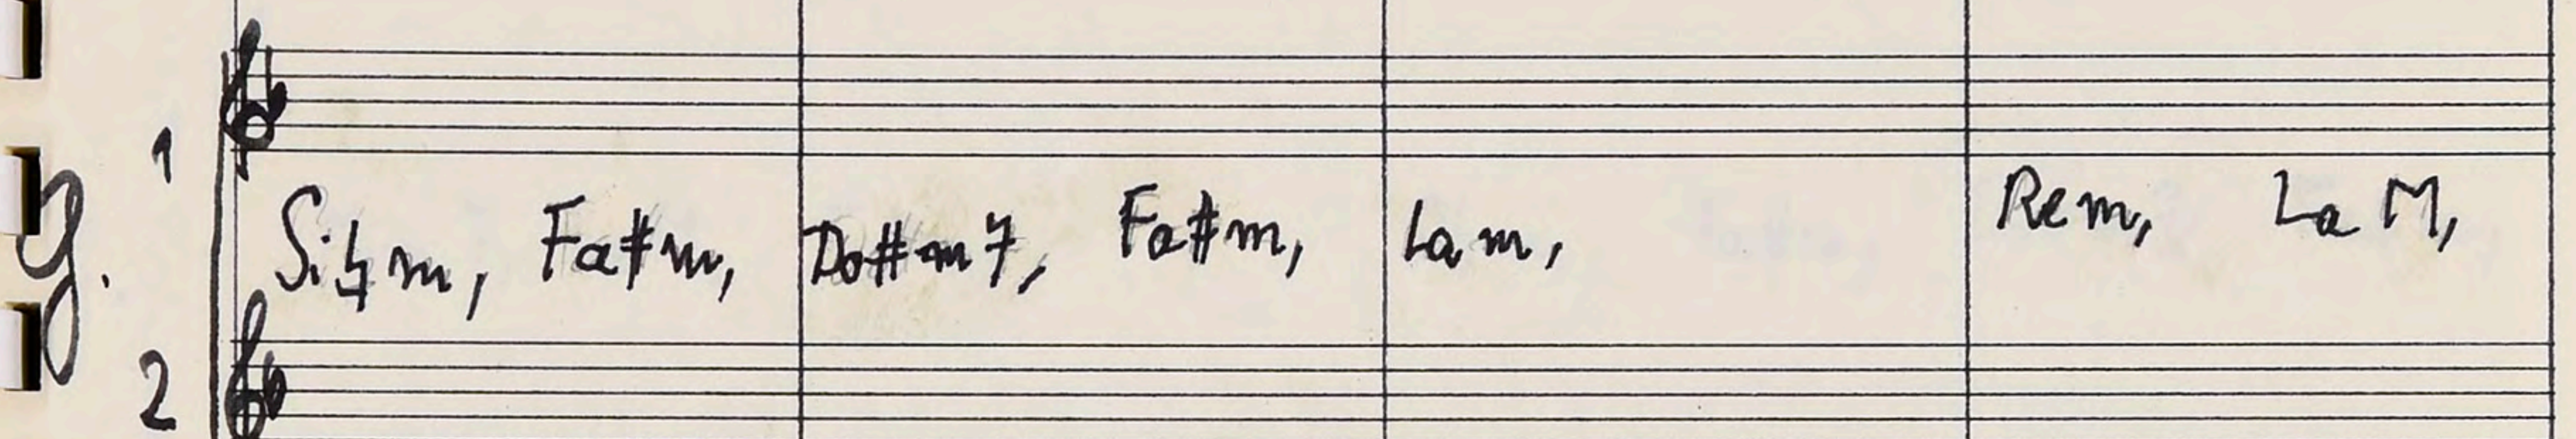 1
g.
Si♮m, Fa#m, Do#m7, Fa#m, Lam, Rem, La M,
2